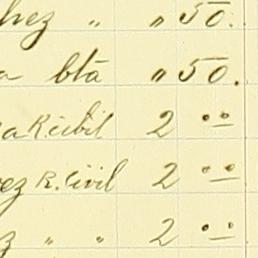 hez " " 50.
a bta " 50.
a R. civil 2 "
ez R. Civil 2 "
z " " 2 "